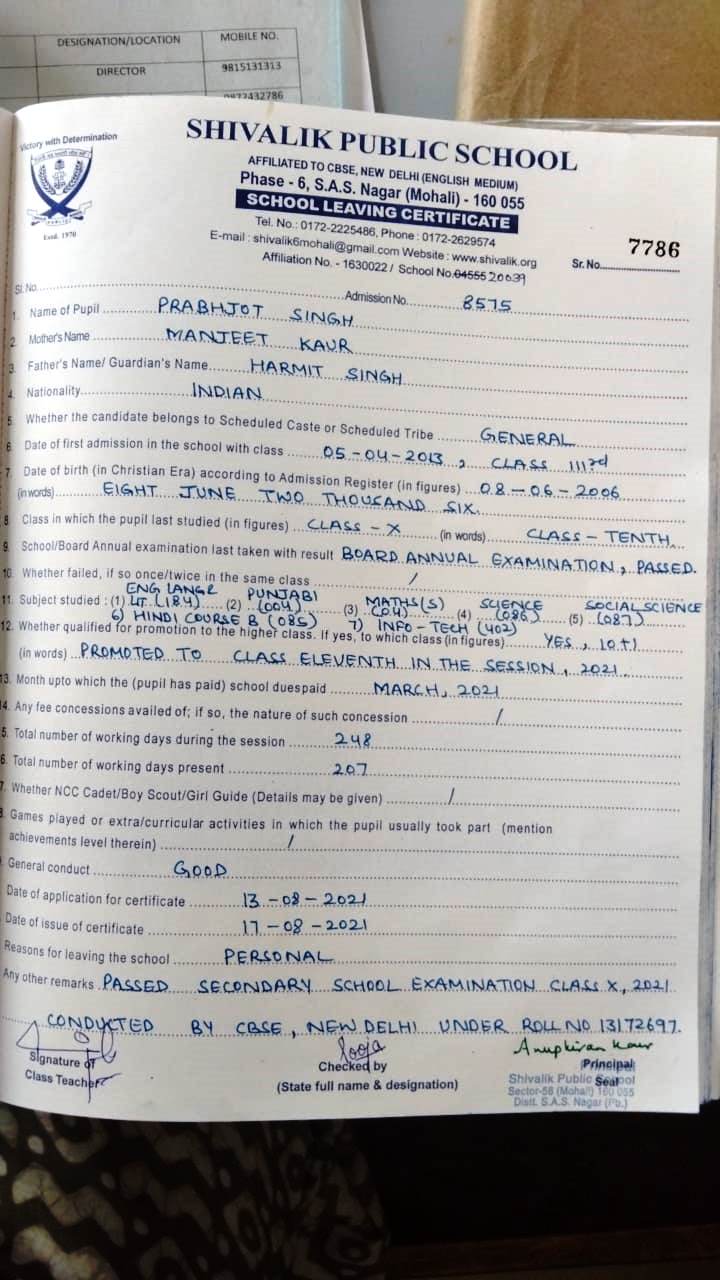 DESIGNATION/LOCATION MOBILE NO.
DIRECTOR 9815131313
Victory with Determination
Estd. 1970
SHIVALIK PUBLIC SCHOOL
AFFILIATED TO CBSE, NEW DELHI (ENGLISH MEDIUM)
Phase - 6, S.A.S. Nagar (Mohali) - 160 055
SCHOOL LEAVING CERTIFICATE
Tel. No.: 0172-2225486, Phone : 0172-2629574
E-mail : shivalik6mohali@gmail.com Website : www.shivalik.org
Affiliation No. - 1630022 / School No. 04555 20039
Sr. No. 7786
Sl. No. Admission No. 8575
1. Name of Pupil PRABHJOT SINGH
2. Mother's Name MANJEET KAUR
3. Father's Name/ Guardian's Name HARMIT SINGH
4. Nationality INDIAN
5. Whether the candidate belongs to Scheduled Caste or Scheduled Tribe GENERAL
6. Date of first admission in the school with class 05-04-2013, CLASS IIIrd
7. Date of birth (in Christian Era) according to Admission Register (in figures) 08-06-2006
(in words) EIGHT JUNE TWO THOUSAND SIX.
8. Class in which the pupil last studied (in figures) CLASS-X (in words) CLASS-TENTH
9. School/Board Annual examination last taken with result BOARD ANNUAL EXAMINATION, PASSED.
10. Whether failed, if so once/twice in the same class /
11. Subject studied : (1) ENG LANG& LIT. (184) (2) PUNJABI (004) (3) MATHS(S) (041) (4) SCIENCE (086) (5) SOCIAL SCIENCE (087)
6) HINDI COURSE B (085) 7) INFO-TECH (402)
12. Whether qualified for promotion to the higher class. If yes, to which class (in figures) YES, 10+1
(in words) PROMOTED TO CLASS ELEVENTH IN THE SESSION, 2021
13. Month upto which the (pupil has paid) school duespaid MARCH, 2021
4. Any fee concessions availed of; if so, the nature of such concession /
5. Total number of working days during the session 248
6. Total number of working days present 207
7. Whether NCC Cadet/Boy Scout/Girl Guide (Details may be given) /
8. Games played or extra/curricular activities in which the pupil usually took part (mention
achievements level therein) /
General conduct GOOD
Date of application for certificate 13-08-2021
Date of issue of certificate 17-08-2021
Reasons for leaving the school PERSONAL
Any other remarks PASSED SECONDARY SCHOOL EXAMINATION CLASS X, 2021
CONDUCTED BY CBSE, NEW DELHI UNDER ROLL NO 13172697.
Pooja Anupkiran Kaur
Signature of Checked by Principal
Class Teacher (State full name & designation) Seal
Shivalik Public School
Sector-56 (Mohali) 160 055
Distt. S.A.S. Nagar (Pb.)